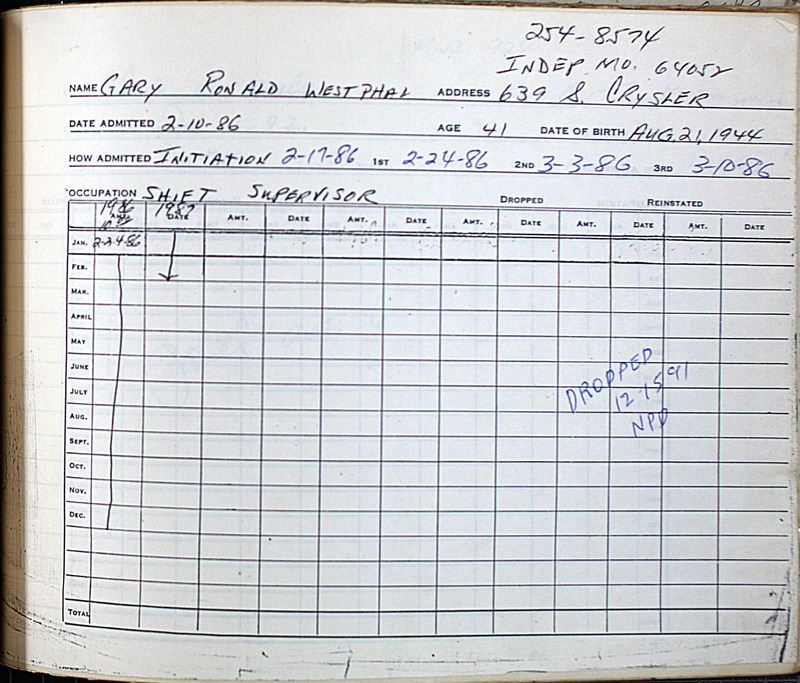 254-8574
INDEP. MO. 64052
NAME GARY RONALD WESTPHAL ADDRESS 639 S. CRYSLER
DATE ADMITTED 2-10-86 AGE 41 DATE OF BIRTH AUG. 21, 1944
HOW ADMITTED INITIATION 2-17-86 1ST 2-24-86 2ND 3-3-86 3RD 3-10-86
OCCUPATION SHIFT SUPERVISOR DROPPED REINSTATED
1986 1987
AMT. DATE AMT. DATE AMT. DATE AMT. DATE AMT. DATE AMT. DATE
JAN. 2-24-86
FEB.
MAR.
APRIL
MAY
JUNE
JULY
AUG.
SEPT.
OCT.
NOV.
DEC.
TOTAL
DROPPED
12-15-91
NPD